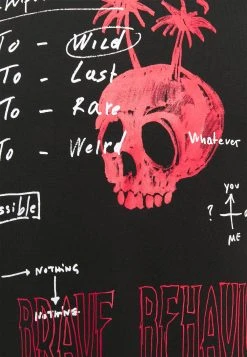 To - Wild
To - Last
To - Rare
To - Weird
Whatever
ssible
YOU
?
ME
NOTHING
NOTHING
BRAVE BEHAVI